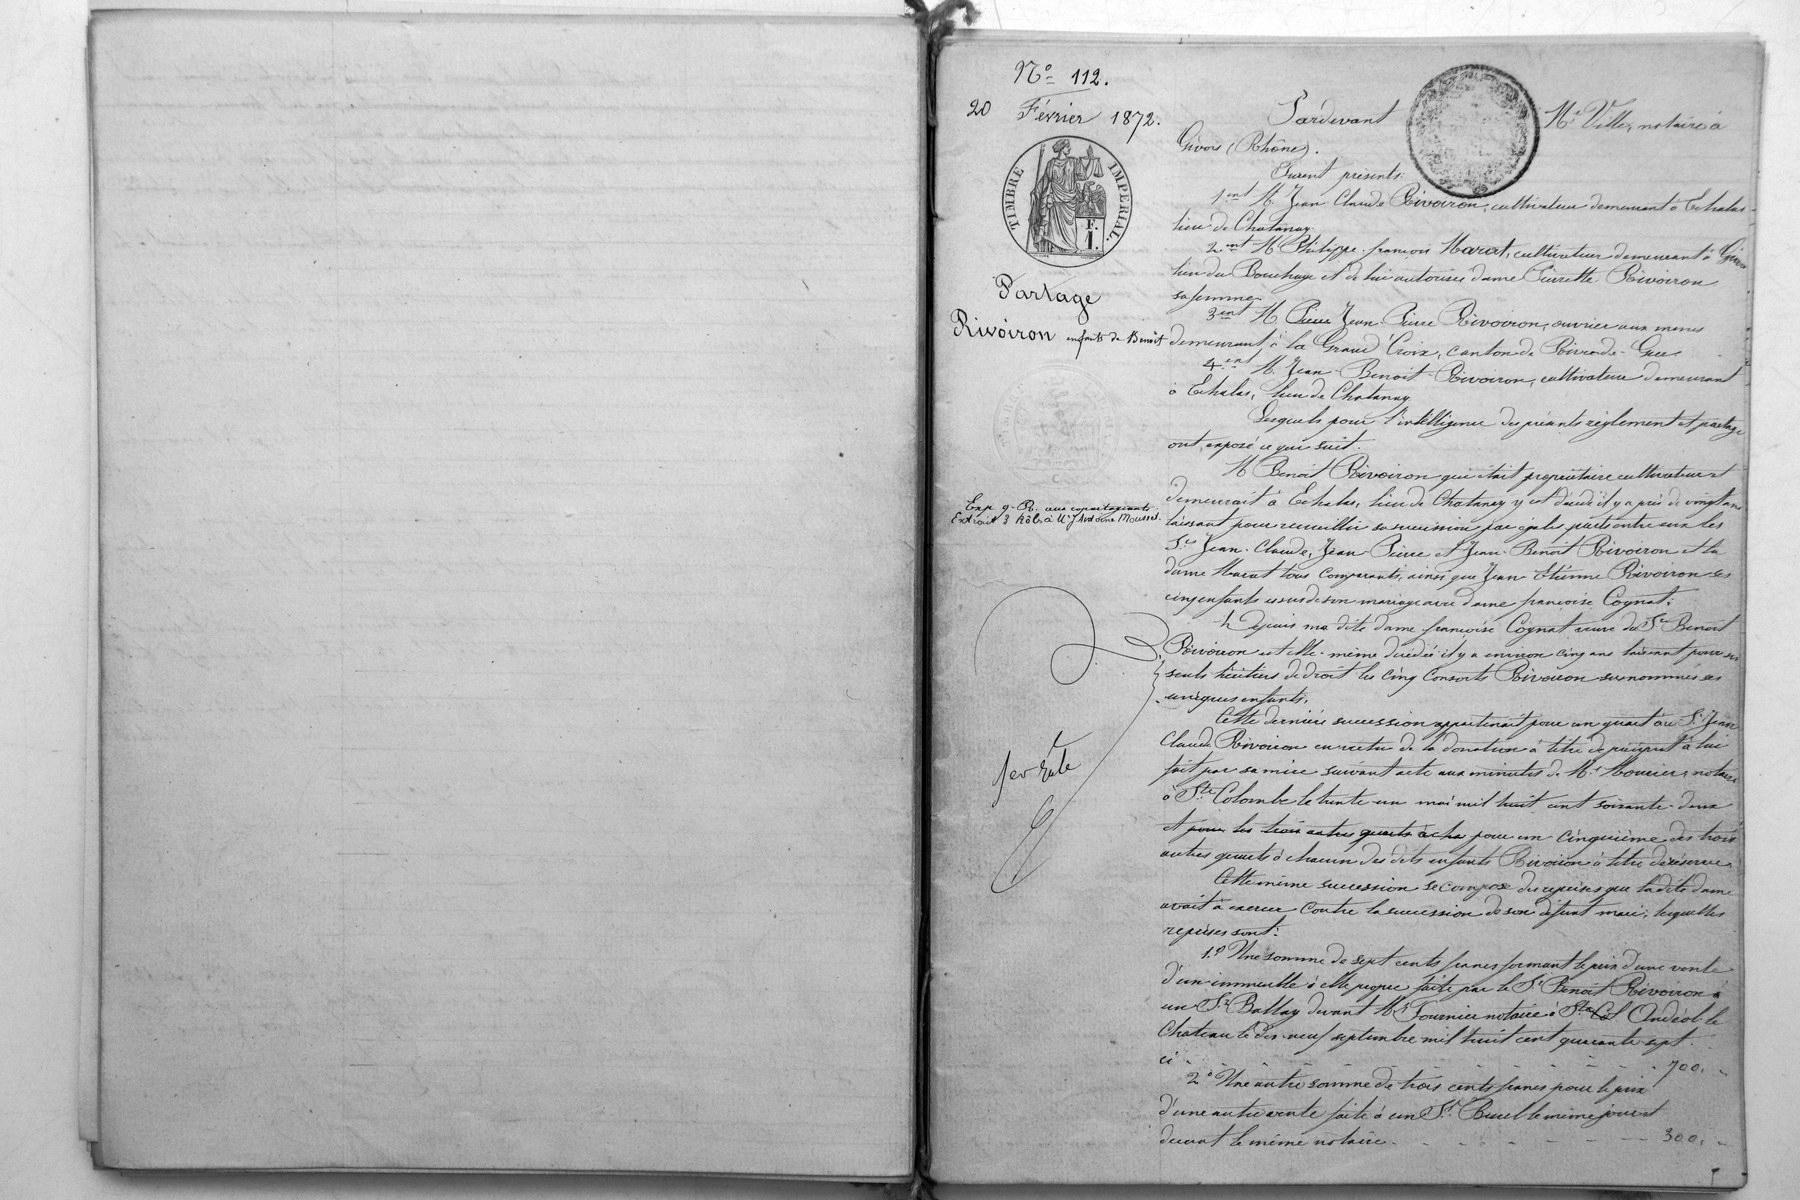 No 112.
20 Février 1872.
TIMBRE IMPERIAL.
F.
1.
Partage
Rivoiron enfants de Benoît
Exp. 9. R. aux copartageants
Extrait 3 Rôl. à Mr Antoine Mousset.
Pardevant Me Ville, notaire à
Givors (Rhône).
Furent présents:
1ent M. Jean Claude Rivoiron, cultivateur demeurant à Echalas
lieu de Chatanay
2ent M. Philippe françois Marat, cultivateur demeurant à Givors
lieu du Bouchage et de lui autorisée dame Pierrette Rivoiron
sa femme
3ent M. Pierre Jean Pierre Rivoiron, ouvrier aux mines
demeurant à la Grand' Croix, canton de Rive de Gier
4ent M. Jean Benoit Rivoiron, cultivateur demeurant
à Echalas, lieu de Chatanay
Lesquels pour l'intelligence des présents règlement et partage
ont exposé ce qui suit.
M. Benoit Rivoiron qui était propriétaire cultivateur et
demeurait à Echalas, lieu de Chatanay y est décédé il y a près de vingt ans
laissant pour recueillir sa succession par égales parts entre eux les
Srs Jean-Claude, Jean-Pierre et Jean-Benoit Rivoiron et la
dame Marat tous comparants, ainsi que Jean Etienne Rivoiron ses
cinq enfants issus de son mariage avec dame françoise Cognat.
Depuis ma dite dame françoise Cognat veuve du Sr Benoit
Rivoiron est elle-même décédée il y a environ cinq ans laissant pour ses
seuls héritiers de droit les cinq consorts Rivoiron susnommés ses
uniques enfants.
Cette dernière succession appartenait pour un quart au Sr Jean
Claude Rivoiron en vertu de la donation à titre de préciput à lui
fait par sa mère suivant acte aux minutes de Me Mourier, notaire
à Ste Colombe le trente un mai mil huit cent soixante-deux
et pour les trois autres quarts à cha pour un cinquième des trois
autres quarts à chacun des dits enfants Rivoiron à titre de réserve
Cette même succession se compose des reprises que la dite dame
avait à exercer contre la succession de son défunt mari, lesquelles
reprises sont:
1.° Une somme de sept cents francs formant le prix d'une vente
d'un immeuble à elle propre faite par le Sr Benoit Rivoiron à
un Sr Ballay devant Me Fournier notaire à St Andéol-le
Chateau le dix-neuf septembre mil huit cent quarante sept
ci - - - 700. "
2° Une autre somme de trois cents francs pour le prix
d'une autre vente faite à un Sr Burel le même jour et
devant le même notaire - - - 300. "